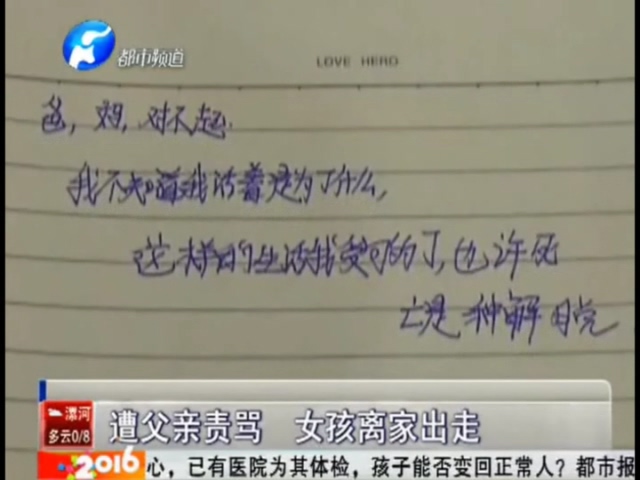 都市频道
LOVE HERO
爸，妈，对不起.
我不知道我活着是为了什么，
这样的生活我受够了，也许死
亡是一种解脱
漯河
多云0/8
遭父亲责骂 女孩离家出走
2016
心，已有医院为其体检，孩子能否变回正常人？都市报